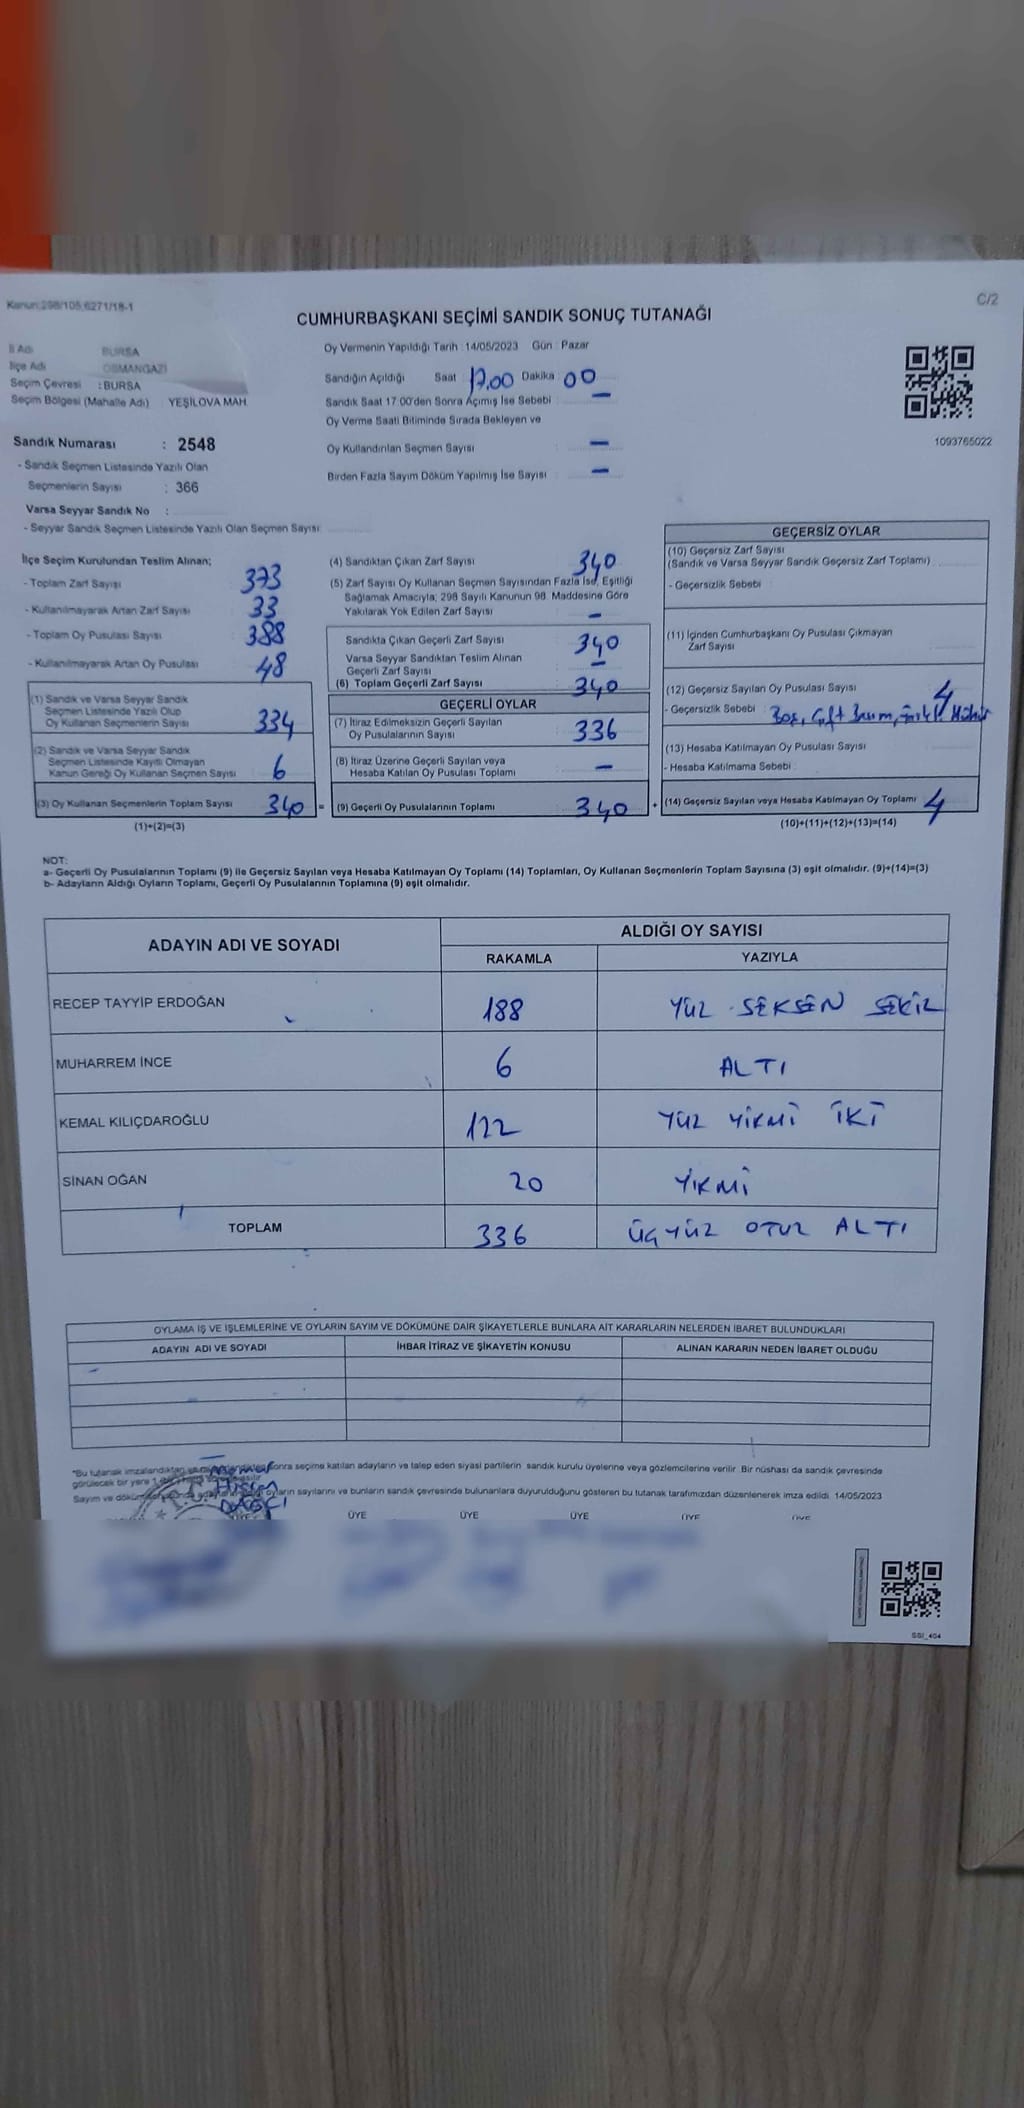 Kanun:298/105,6271/18-1
C/2
CUMHURBAŞKANI SEÇİMİ SANDIK SONUÇ TUTANAĞI
İl Adı BURSA
İlçe Adı OSMANGAZİ
Seçim Çevresi : BURSA
Seçim Bölgesi (Mahalle Adı) YEŞİLOVA MAH.
Sandık Numarası : 2548
- Sandık Seçmen Listesinde Yazılı Olan
Seçmenlerin Sayısı : 366
Varsa Seyyar Sandık No :
- Seyyar Sandık Seçmen Listesinde Yazılı Olan Seçmen Sayısı:
Oy Vermenin Yapıldığı Tarih : 14/05/2023 Gün : Pazar
Sandığın Açıldığı Saat 17.00 Dakika 00
Sandık Saat 17:00'den Sonra Açımış İse Sebebi : —
Oy Verme Saati Bitiminde Sırada Bekleyen ve
Oy Kullandırılan Seçmen Sayısı : —
Birden Fazla Sayım Döküm Yapılmış İse Sayısı : —
1093765022
İlçe Seçim Kurulundan Teslim Alınan;
- Toplam Zarf Sayısı 373
- Kullanılmayarak Artan Zarf Sayısı 33
- Toplam Oy Pusulası Sayısı 388
- Kullanılmayarak Artan Oy Pusulası 48
(1) Sandık ve Varsa Seyyar Sandık
Seçmen Listesinde Yazılı Olup
Oy Kullanan Seçmenlerin Sayısı 334
(2) Sandık ve Varsa Seyyar Sandık
Seçmen Listesinde Kayıtlı Olmayan
Kanun Gereği Oy Kullanan Seçmen Sayısı 6
(3) Oy Kullanan Seçmenlerin Toplam Sayısı 340 =
(1)+(2)=(3)
(4) Sandıktan Çıkan Zarf Sayısı 340
(5) Zarf Sayısı Oy Kullanan Seçmen Sayısından Fazla İse, Eşitliği
Sağlamak Amacıyla; 298 Sayılı Kanunun 98. Maddesine Göre
Yakılarak Yok Edilen Zarf Sayısı : —
Sandıkta Çıkan Geçerli Zarf Sayısı : 340
Varsa Seyyar Sandıktan Teslim Alınan
Geçerli Zarf Sayısı : —
(6) Toplam Geçerli Zarf Sayısı : 340
GEÇERLİ OYLAR
(7) İtiraz Edilmeksizin Geçerli Sayılan
Oy Pusulalarının Sayısı : 336
(8) İtiraz Üzerine Geçerli Sayılan veya
Hesaba Katılan Oy Pusulası Toplamı : —
(9) Geçerli Oy Pusulalarının Toplamı : 340 +
GEÇERSİZ OYLAR
(10) Geçersiz Zarf Sayısı
(Sandık ve Varsa Seyyar Sandık Geçersiz Zarf Toplamı)
- Geçersizlik Sebebi :
(11) İçinden Cumhurbaşkanı Oy Pusulası Çıkmayan
Zarf Sayısı :
(12) Geçersiz Sayılan Oy Pusulası Sayısı : 4
- Geçersizlik Sebebi : Boş, Çift Basım, Farklı Mühür
(13) Hesaba Katılmayan Oy Pusulası Sayısı :
- Hesaba Katılmama Sebebi :
(14) Geçersiz Sayılan veya Hesaba Katılmayan Oy Toplamı : 4
(10)+(11)+(12)+(13)=(14)
NOT:
a- Geçerli Oy Pusulalarının Toplamı (9) ile Geçersiz Sayılan veya Hesaba Katılmayan Oy Toplamı (14) Toplamları, Oy Kullanan Seçmenlerin Toplam Sayısına (3) eşit olmalıdır. (9)+(14)=(3)
b- Adayların Aldığı Oyların Toplamı, Geçerli Oy Pusulalarının Toplamına (9) eşit olmalıdır.
ADAYIN ADI VE SOYADI ALDIĞI OY SAYISI
RAKAMLA YAZIYLA
RECEP TAYYİP ERDOĞAN 188 YÜZ SEKSEN SEKİZ
MUHARREM İNCE 6 ALTI
KEMAL KILIÇDAROĞLU 122 YÜZ YİRMİ İKİ
SİNAN OĞAN 20 YİRMİ
TOPLAM 336 ÜÇYÜZ OTUZ ALTI
OYLAMA İŞ VE İŞLEMLERİNE VE OYLARIN SAYIM VE DÖKÜMÜNE DAİR ŞİKAYETLERLE BUNLARA AİT KARARLARIN NELERDEN İBARET BULUNDUKLARI
ADAYIN ADI VE SOYADI İHBAR İTİRAZ VE ŞİKAYETİN KONUSU ALINAN KARARIN NEDEN İBARET OLDUĞU
*Bu tutanak imzalandıktan sonra seçime katılan adayların ve talep eden siyasi partilerin sandık kurulu üyelerine veya gözlemcilerine verilir. Bir nüshası da sandık çevresinde
görülecek bir yere
Sayım ve döküm oyların sayılarını ve bunların sandık çevresinde bulunanlara duyurulduğunu gösteren bu tutanak tarafımızdan düzenlenerek imza edildi. 14/05/2023
ÜYE ÜYE ÜYE ÜYE ÜYE
SSI_404